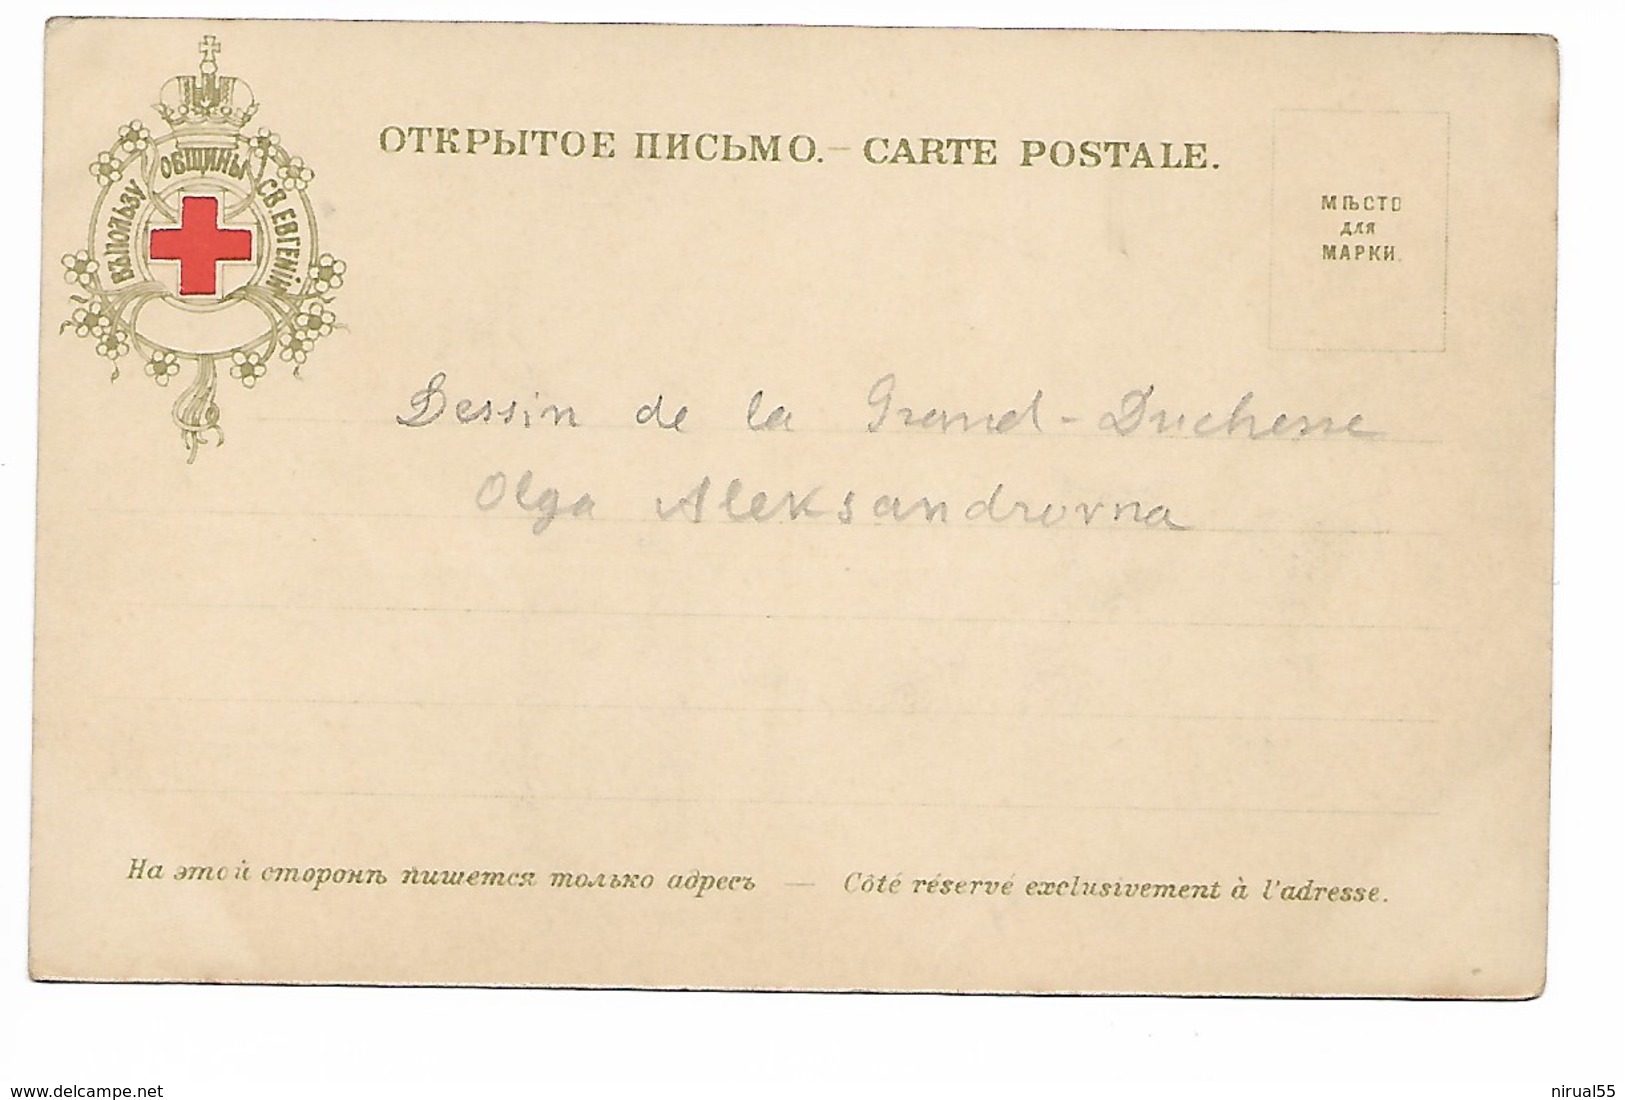 ВЪ ПОЛЬЗУ ОБЩИНЫ СВ. ЕВГЕНІИ
ОТКРЫТОЕ ПИСЬМО. – CARTE POSTALE.
МѢСТО
ДЛЯ
МАРКИ.
Dessin de la Grand-Duchesse
Olga Aleksandrovna
На этой сторонѣ пишется только адресъ — Côté réservé exclusivement à l'adresse.
www.delcampe.net
nirual55